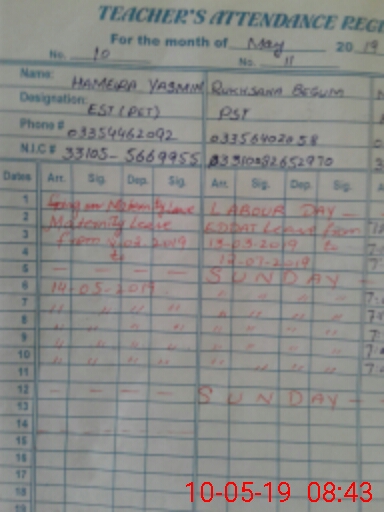 TEACHER'S ATTENDANCE REG
For the month of May 2019
No. 10 No. 11
Name: HAMEIRA YASMIN RUKHSANA BEGUM
Designation: EST (PET) PST
Phone # 03354462092 03356402058
N.I.C # 33105-5669955 3310282652970
Dates Arr. Sig. Dep. Sig. Arr. Sig. Dep. Sig.
1 Maternity Leave LABOUR DAY -
2 Maternity Leave EDDAT Leave from
3 from 03.2019 to
4 to
5 - - - - SUNDAY -
6 14-05-2019 " " " "
7 " " " " " " " "
8 " " " " " " " "
9 " " " " " " " "
10 " " " " " " " "
11
12 - - - - SUNDAY - -
13
14
15
16
17
18
19
10-05-19 08:43